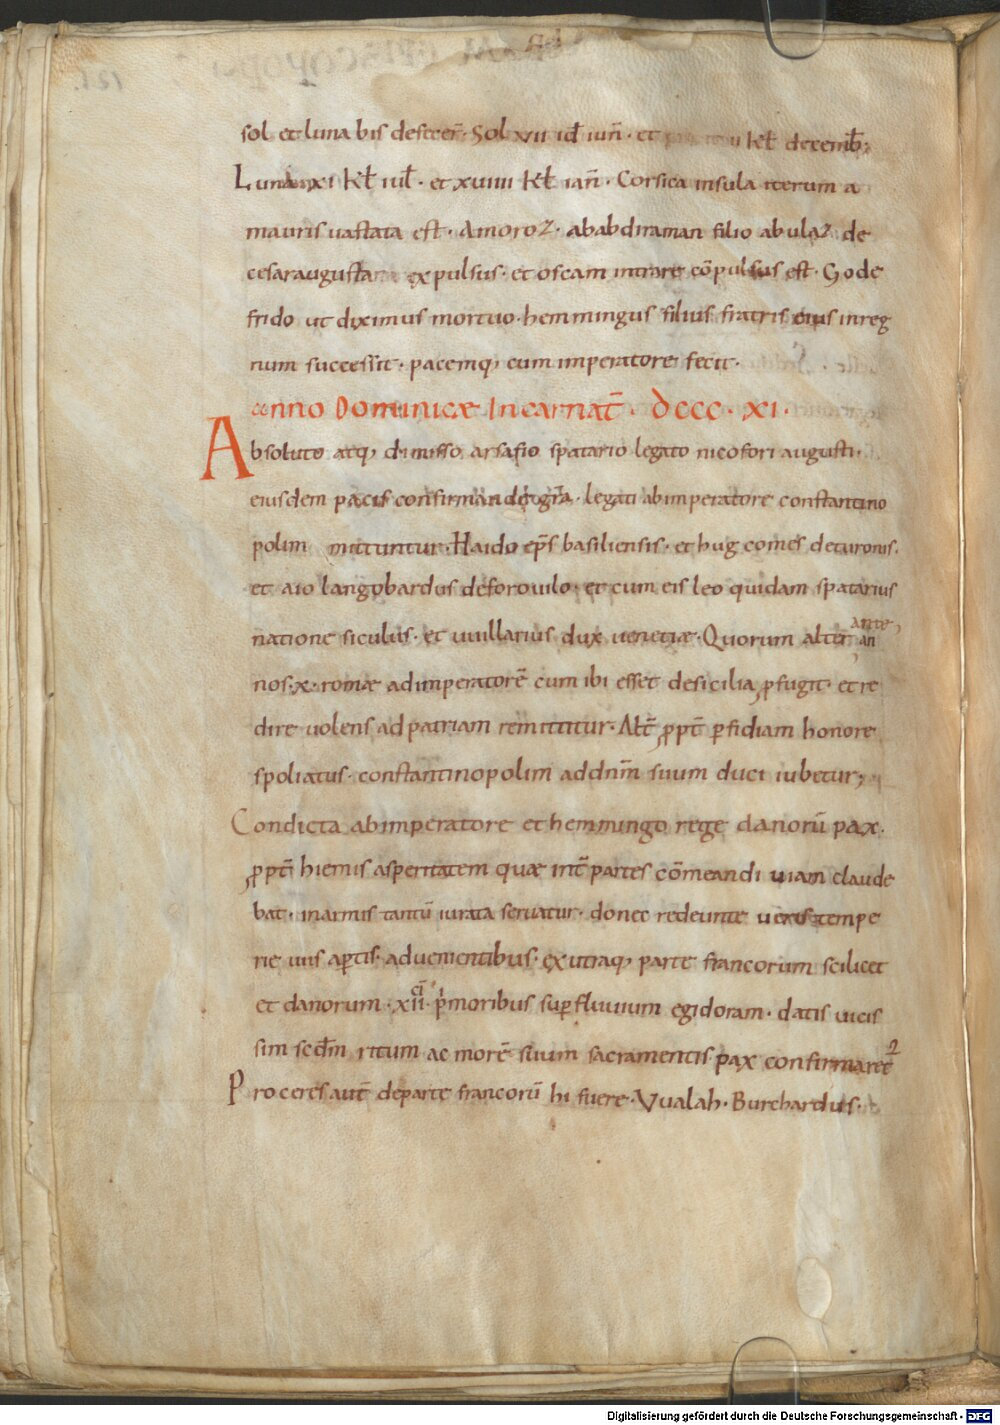 sol et luna bis defecer̄· Sol ·vii id iun̄· et kł decemb;
Luna xi kł iuł· et xviiii kł ian̄· Corsica insula iterum a
mauris uastata est· Amoroz· ab abdiraman filio abulaz de
cesaraugusta expulsus· et oscam intrare cōpulsus est· Gode
frido ut diximus mortuo· hemmingus filius fratris eius in reg
num successit· pacemq; cum imperatore fecit·
Anno Dominicæ Incarnat̄· dccc· xi·
Absoluto atq; dimisso arsafio spatario legato nicofori augusti·
eiusdem pacis confirmandę gr̄a· legati ab imperatore constantino
polim mittuntur· Haido ep̄s basiliensis· et hug comes de turonis·
et aio langobardus de foroiulo· et cum eis leo quidam spatarius
natione siculus· et uuillarius dux uenetiæ· Quorum alter ante an
nos·x· romæ ad imperatorē cum ibi esset de sicilia ꝓfugit· et re
dire uolens ad patriam remittitur· Alt̄ ꝓpt̄ ꝑfidiam honore
spoliatus· constantinopolim ad dnm̄ suum duci iubetur;
Condicta ab imperatore et hemmingo rege danorū pax·
ꝓpt̄ hiemis asperitatem quæ int̄ partes cōmeandi uiam claude
bat· in armis tantū iurata seruatur· donec redeunte ueris tempe
rie uiis aꝑtis· aduenientibus· ex utraq; parte francorum scilicet
et danorum· xii· p̍moribus suꝑ fluuium egidoram· datis uicis
sim scd̄m ritum ac morē suum sacramentis pax confirmaret2
Proceres aut̄ de parte francorū hi fuere· Vualah· Burchardus·
Digitalisierung gefördert durch die Deutsche Forschungsgemeinschaft - DFG